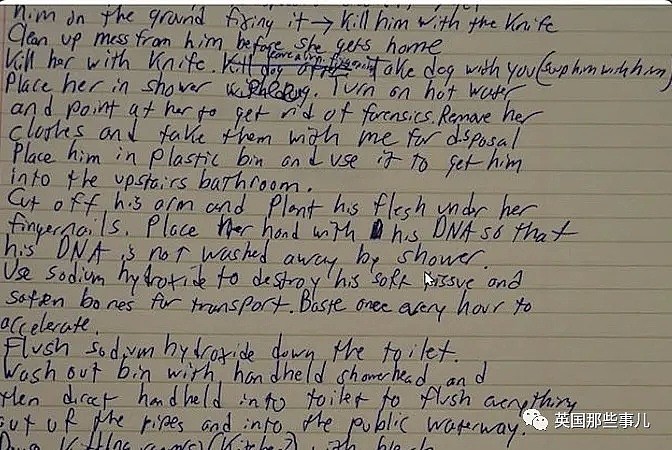 him on the ground fixing it → kill him with the knife
Clean up mess from him before she gets home
Kill her with knife. Take dog with you (swap him with him)
Place her in shower. Turn on hot water
and point at her to get rid of forensics. Remove her
clothes and take them with me for disposal
Place him in plastic bin and use it to get him
into the upstairs bathroom.
Cut off his arm and plant his flesh under her
fingernails. Place her hand with his DNA so that
his DNA is not washed away by shower.
Use sodium hydroxide to destroy his soft tissue and
soften bones for transport. Baste once every hour to
accelerate.
Flush sodium hydroxide down the toilet.
Wash out bin with handheld showerhead and
then direct handheld into toilet to flush everything
out of the pipes and into the public waterway.
with bleach
英国那些事儿